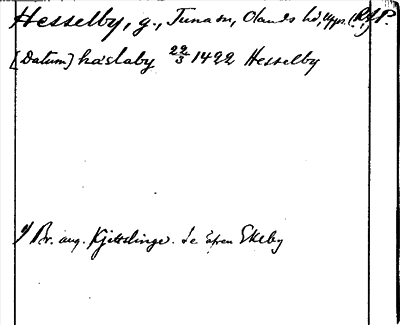 Hesselby, g., Tuna sn, Olands hd, Upps. (RAP.
[Datum] hæslaby 22/3 1422 Hesselby
1/ Br. ang. Kjettslinge. Se även Ekeby